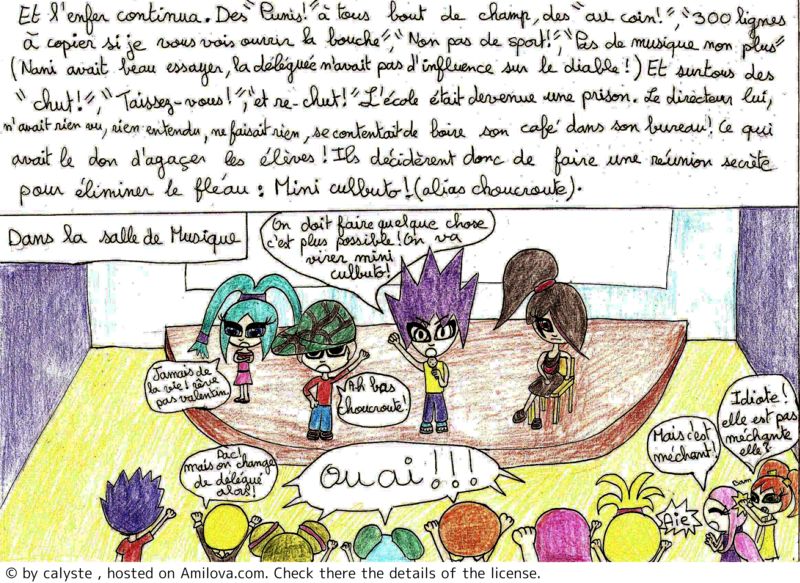 Et l'enfer continua. Des "Punis!" à tous bout de champ, des "au coin!", "300 lignes
à copier si je vous vois ouvrir la bouche", "Non pas de sport!", "Pas de musique non plus"
(Nani avait beau essayer, la déléguée n'avait pas d'influence sur le diable!) Et surtous des
"chut!", "Taissez-vous!", "et re-chut!" L'école était devenue une prison. Le directeur lui,
n'avait rien vu, rien entendu, ne faisait rien, se contentait de boire son café dans son bureau! Ce qui
avait le don d'agaçer les élèves! Ils décidèrent donc de faire une réunion secrète
pour éliminer le fléau : Mini culbuto! (alias choucroute).
Dans la salle de Musique
On doit faire quelque chose
c'est plus possible! On va
virer mini
culbuto!
Jamais de
la vie! rêve
pas valentin
Ah bas
choucroute!
Dac!
mais on change
de délégué
alors!
Ouai!!!
Mais c'est
méchant!
Idiote!
elle est pas
méchante
elle?
Bam
Aïe
© by calyste , hosted on Amilova.com. Check there the details of the license.